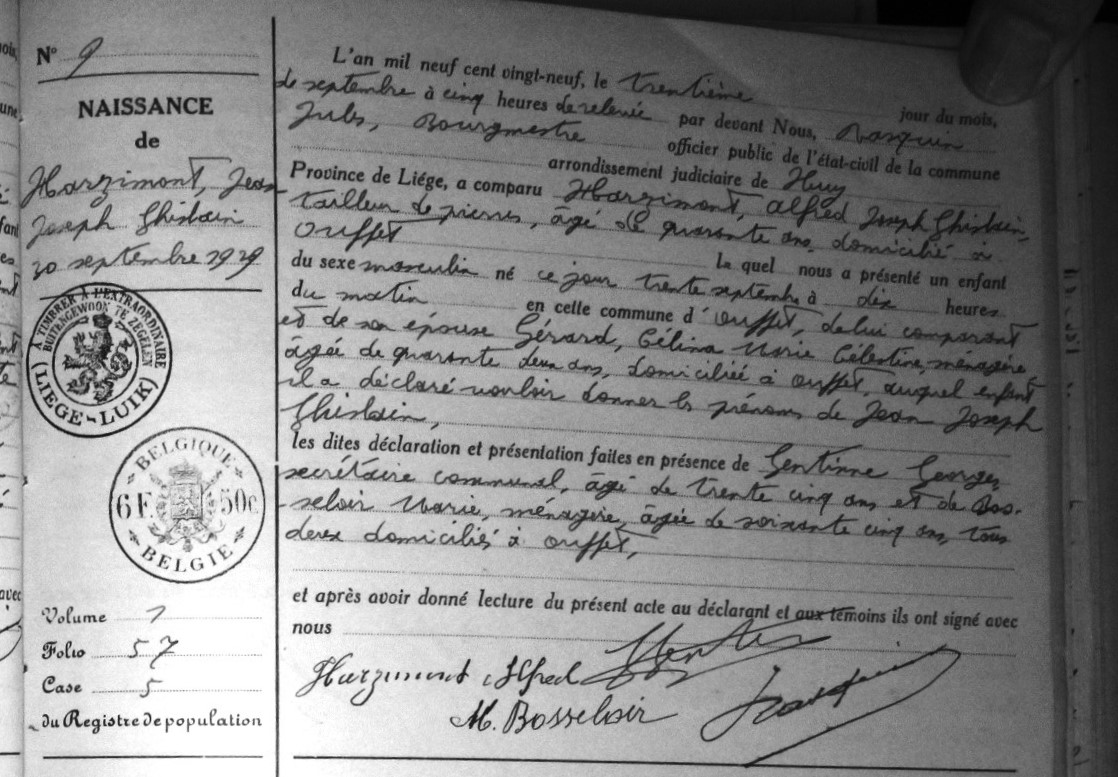 N° 9
NAISSANCE
de
Harzimont, Jean
Joseph Ghislain
30 septembre 1929
À TIMBRER À L'EXTRAORDINAIRE
BUITENGEWOON TE ZEGELEN
(LIEGE-LUIK)
BELGIQUE
6 F. 50c.
BELGIE
Volume 1
Folio 57
Case 5
du Registre de population
L'an mil neuf cent vingt-neuf, le trentième jour du mois,
de septembre à cinq heures de relevée par devant Nous, Rasquin
Jules, Bourgmestre officier public de l'état-civil de la commune
arrondissement judiciaire de Huy
Province de Liége, a comparu Harzimont, Alfred Joseph Ghislain,
tailleur de pierres, âgé de quarante ans, domicilié à
Ouffet Le quel nous a présenté un enfant
du sexe masculin né ce jour trente septembre à dix heures
du matin en celle commune d'Ouffet, de lui comparant
et de son épouse Gérard, Célina Marie Célestine, ménagère
âgée de quarante deux ans, domiciliée à Ouffet, auquel enfant
il a déclaré vouloir donner les prénoms de Jean Joseph
Ghislain,
les dites déclaration et présentation faites en présence de Gentinne Georges
secrétaire communal, âgé de trente cinq ans et de Bos-
seloir Marie, ménagère, âgée de soixante cinq ans, tous
deux domiciliés à Ouffet,
et après avoir donné lecture du présent acte au déclarant et aux témoins ils ont signé avec
nous
Harzimont Alfred
M. Bosseloir